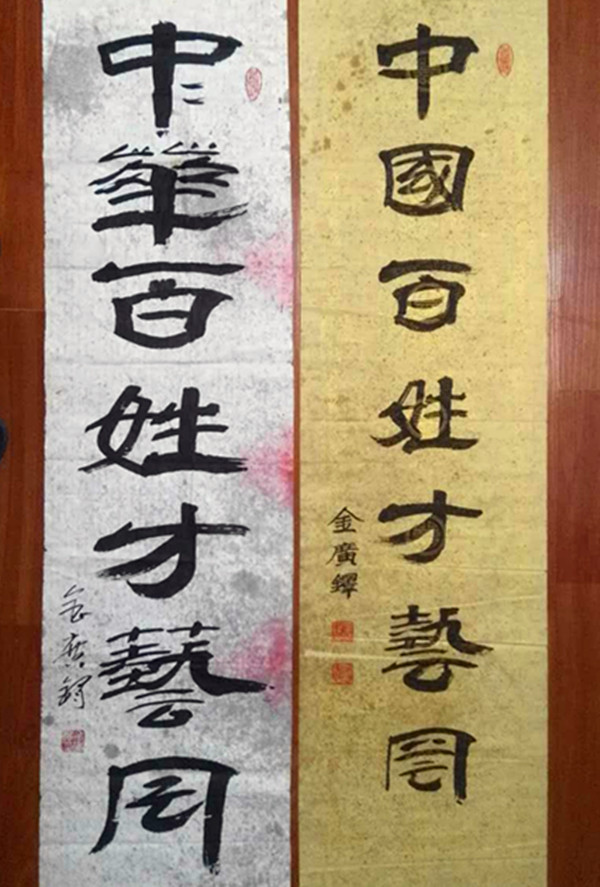 中國百姓才藝网
金廣鐸
中華百姓才藝网
金廣鐸